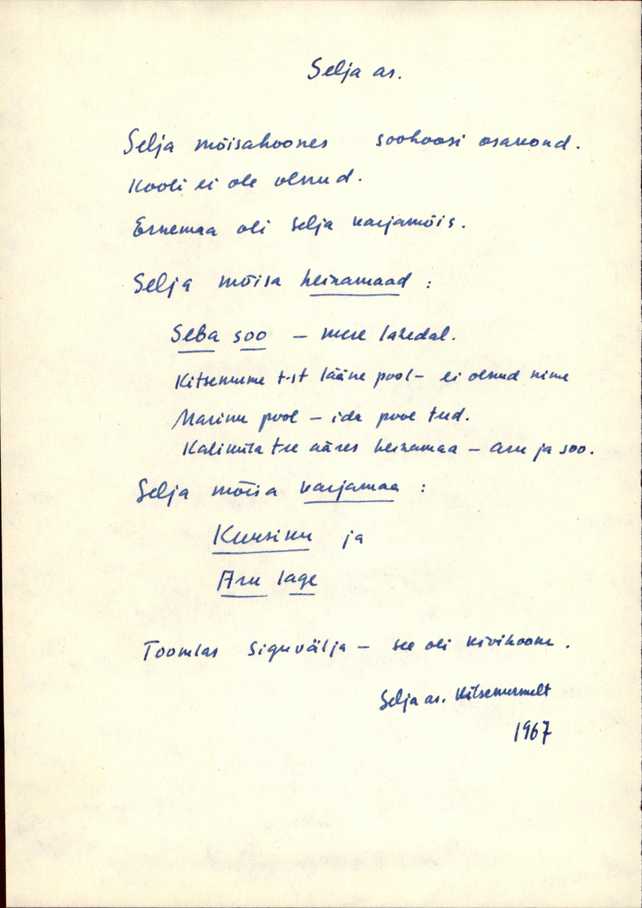 Selja as.
Selja mõisahoones soohoosi osakond.
Kooli ei ole olnud.
Ernemaa oli Selja karjamõis.
Selja mõisa heinamaad :
Seba soo – mere lahedal.
Kitsemurru t-st lääne pool – ei olnud nime
pool – ida pool teed.
tee ääres heinamaa – aru ja soo.
Selja mõisa karjamaa :
Kuusiku ja
Aru lage
Toomlas Siguvälja – see oli kivihoone.
Selja as. Kitsemurrult
1967